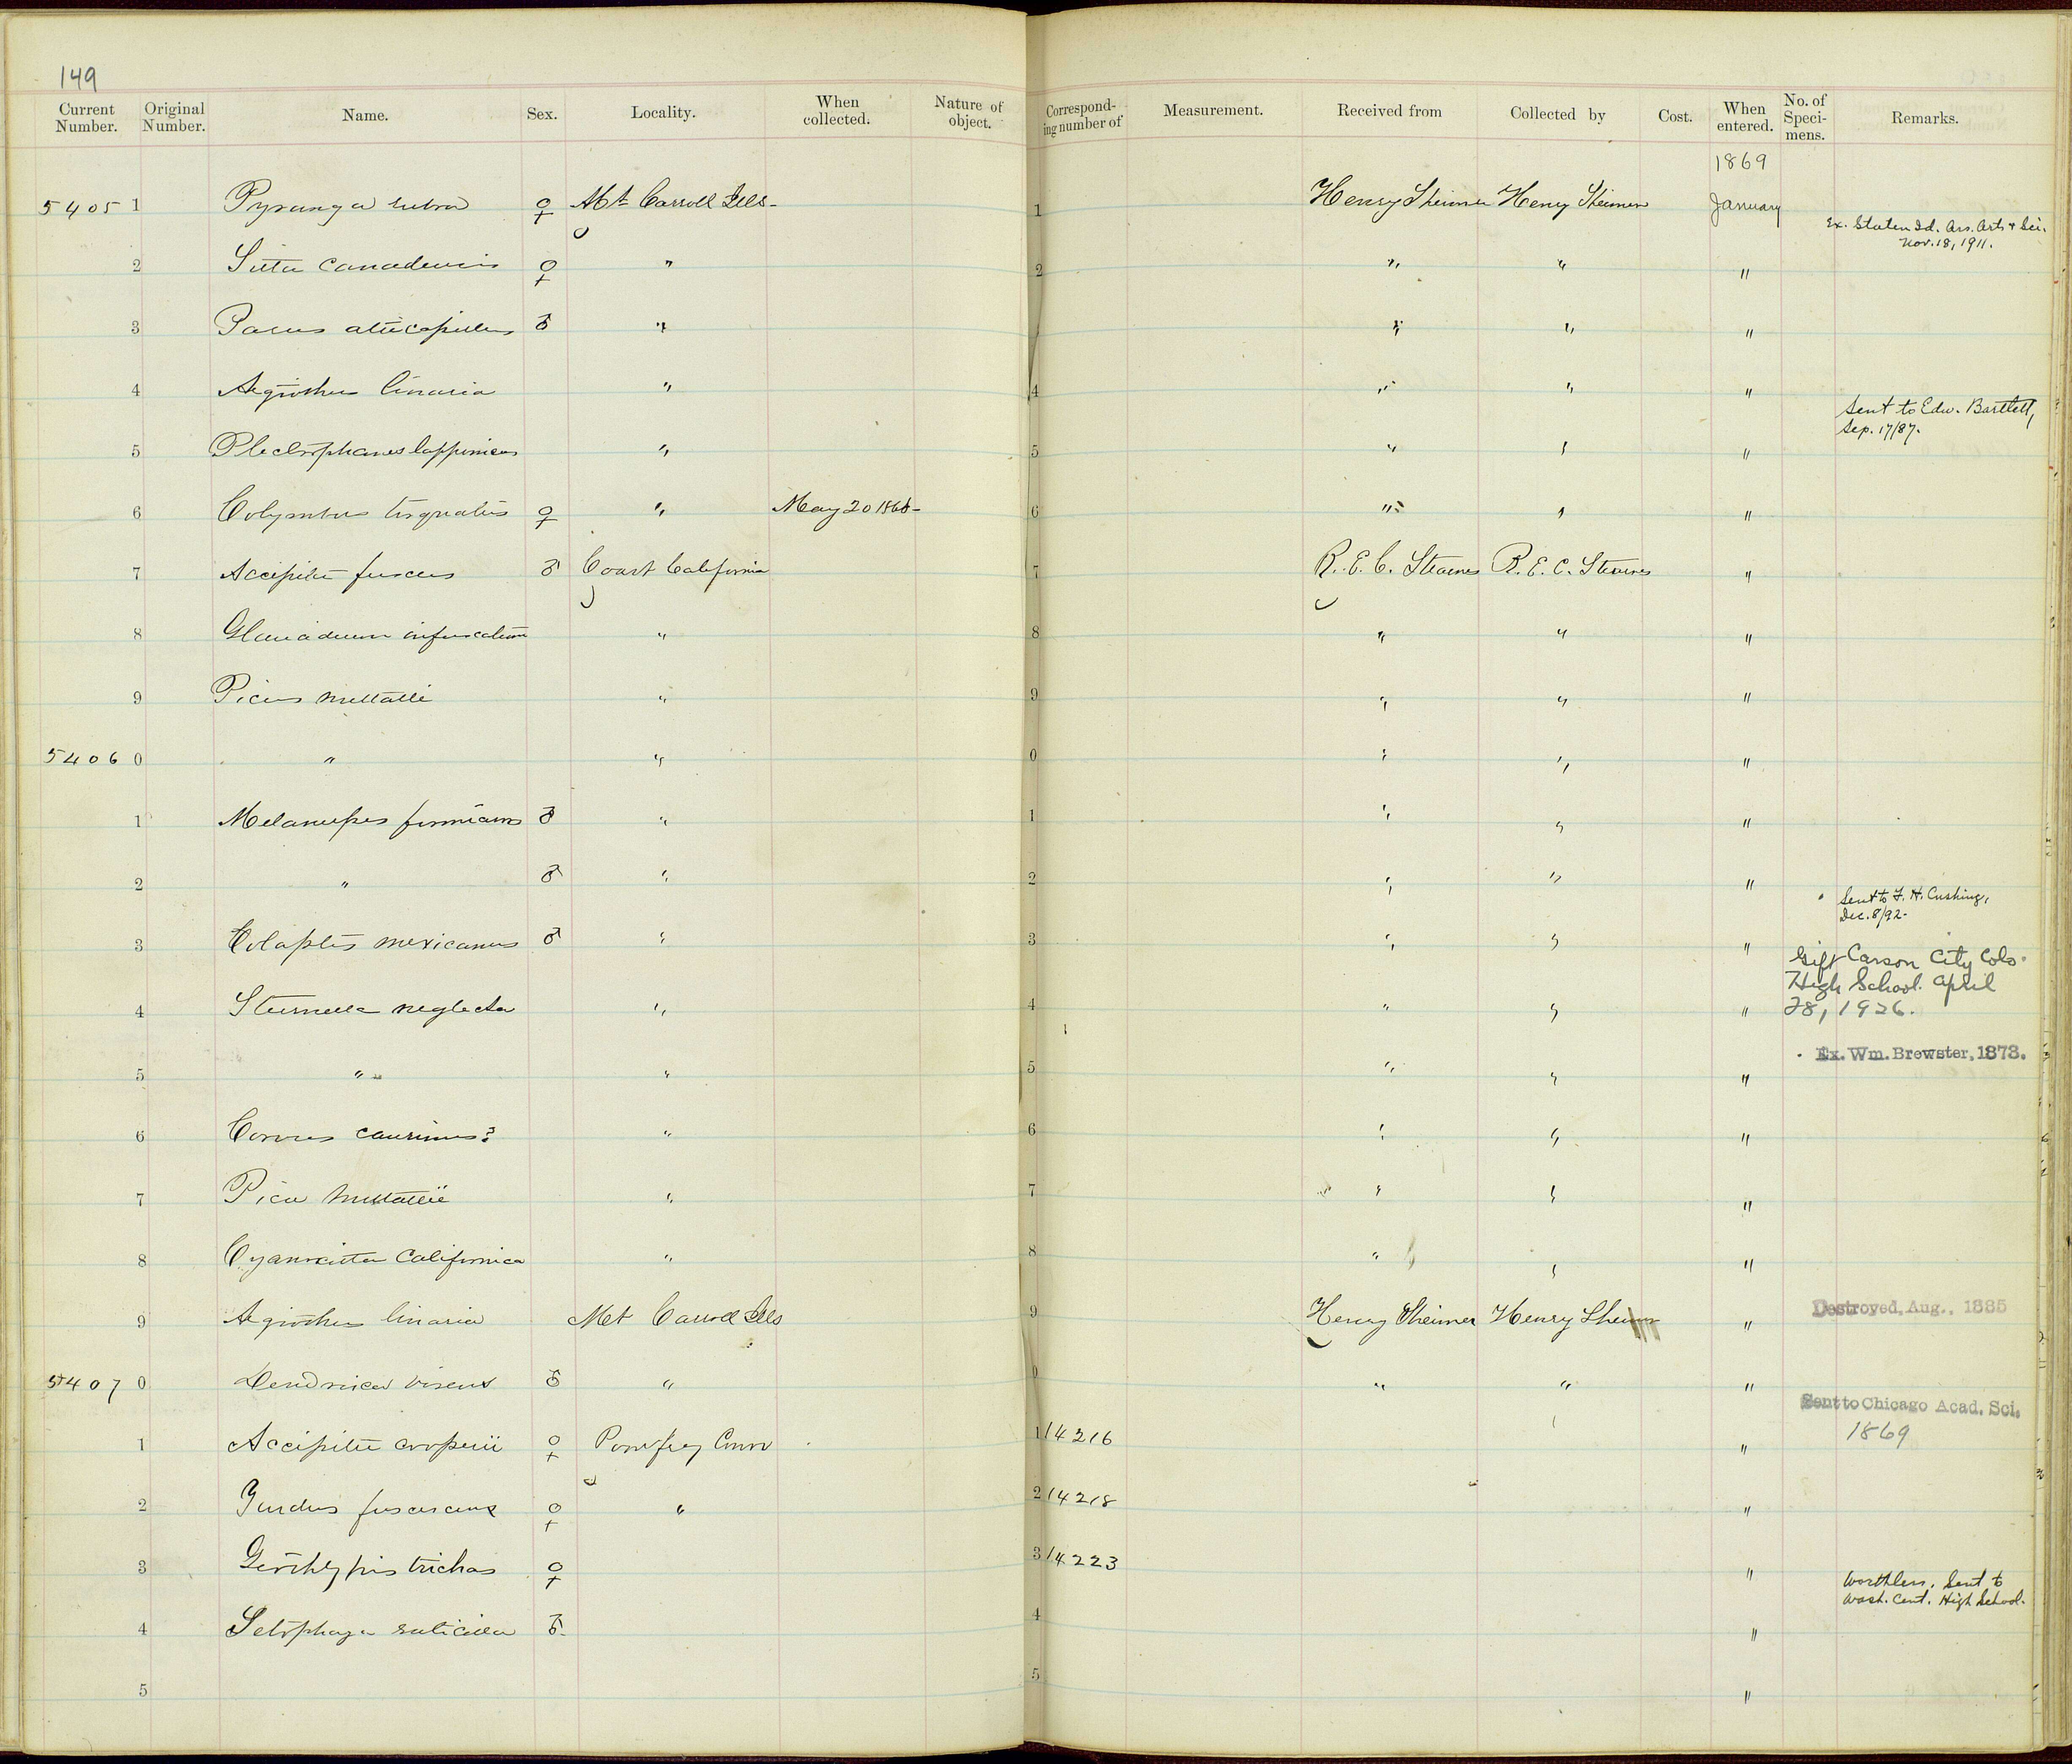 149
Current Number. Original Number. Name. Sex. Locality. When collected. Nature of object. Corresponding number of Measurement. Received from Collected by Cost. When entered. No. of Specimens. Remarks.
1869
54051 Pyranga rubra ♀ Mt Carroll Ills- 1 Henry Shimer Henry Shimer January
Ex. Staten Id. Ass. Arts & Sci.
Nov. 18, 1911.
2 Sitta canadensis ♀ " 2 " " "
3 Parus atricapillus ♂ " " " "
4 Aegiothus linaria " 4 " " "
Sent to Edw. Bartlett,
Sep. 17/87.
5 Plectrophanes lapponicus " 5 " " "
6 Colymbus torquatus ♀ " May 20 1868- 6 " " "
7 Accipiter fuscus ♂ Coast California 7 R. E. C. Stearns R. E. C. Stearns "
8 Glaucidium infuscatum " 8 " " "
9 Picus nuttalli " 9 " " "
54060 " " 0 " " "
1 Melanerpes formicivorus ♂ " 1 " " "
2 " ♂ " 2 " " "
Sent to F. H. Cushing,
Dec. 8/92-
3 Colaptes mexicanus ♂ " 3 " " "
Gift Carson City Colo.
High School. April
28, 1926.
4 Sturnella neglecta " 4 " " "
Ex. Wm. Brewster, 1873.
5 " " 5 " " "
6 Corvus caurinus? " 6 " " "
7 Pica Nuttallii " 7 " " "
8 Cyanocitta Californica " 8 " " "
9 Aegiothus linaria Mt Carroll Ills 9 Henry Shimer Henry Shimer "
Destroyed, Aug., 1885
54070 Dendroica virens ♂ " 0 " " "
Sent to Chicago Acad. Sci.
1869
1 Accipiter cooperii ♀ Pomfrey Conn 1 14216 "
2 Turdus fuscescens ♀ " 2 14218 "
3 Geothlypis trichas ♀ 3 14223 "
Worthless. Sent to
Wash. Cent. High School.
4 Setophaga ruticilla ♂ 4 "
5 5 "